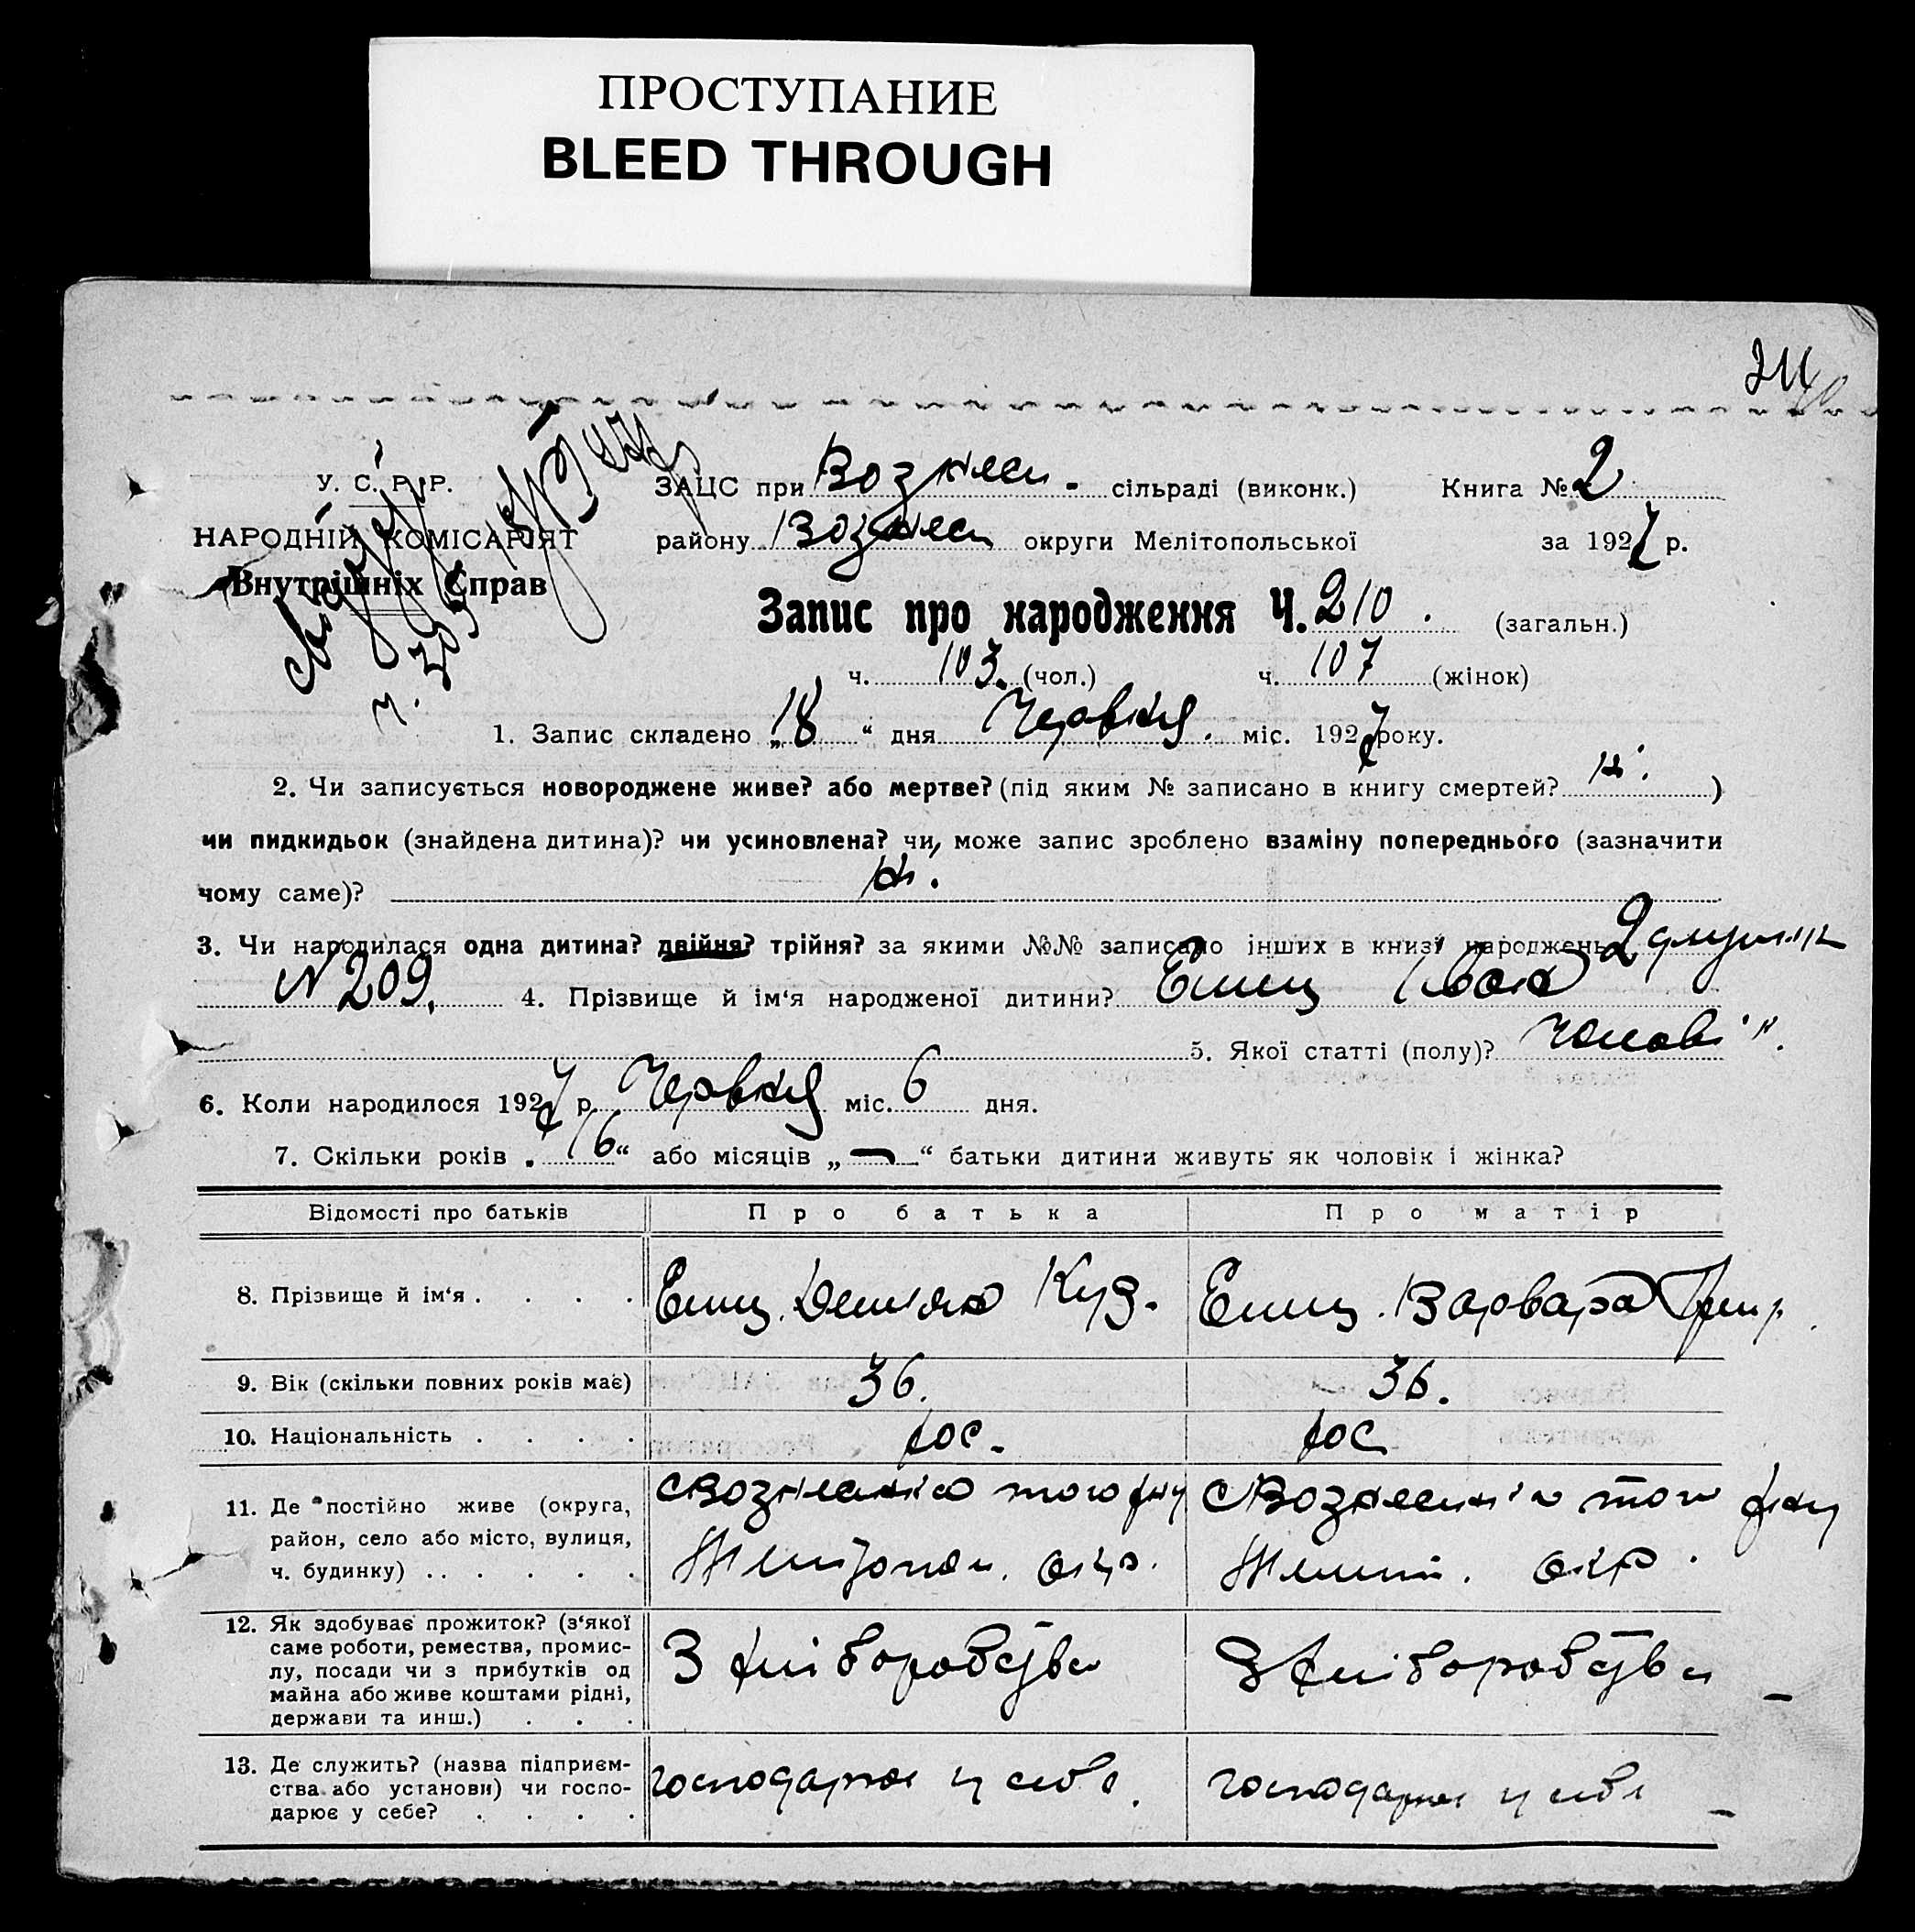 ПРОСТУПАНИЕ
BLEED THROUGH
У. С. Р. Р.
НАРОДНІЙ КОМІСАРІЯТ
Внутрішніх Справ
ЗАЦС при Вознесен. сільраді (виконк.) Книга № 2
району Вознесен округи Мелітопольської за 1927 р.
Запис про народження Ч. 210. (загальн.)
ч. 103. (чол.) ч. 107 (жінок)
1. Запис складено „18“ дня Червня. міс. 1927 року.
2. Чи записується новороджене живе? або мертве? (під яким № записано в книгу смертей? )
чи пидкидьок (знайдена дитина)? чи усиновлена? чи, може запис зроблено взаміну попереднього (зазначити
чому саме)?
3. Чи народилася одна дитина? двійня? трійня? за якими №№ записано інших в книзі народжень 2
N 209. 4. Прізвище й ім‘я народженої дитини?
5. Якої статті (полу)? чолові
6. Коли народилося 1927 р. Червня міс. 6 дня.
7. Скільки років „16“ або місяців „—“ батьки дитини живуть як чоловік і жінка?
Відомості про батьків Про батька Про матір
8. Прізвище й ім‘я . . . . Куз. Варвара
9. Вік (скільки повних років має) 36. 36.
10. Національність . . . . рос. рос
11. Де постійно живе (округа,
район, село або місто, вулиця,
ч. будинку) . . . . . .
12. Як здобуває прожиток? (з‘якої
саме роботи, ремества, промис-
лу, посади чи з прибутків од
майна або живе коштами рідні,
держави та инш.) . . .
З хліборобства З хліборобства
13. Де служить? (назва підприєм-
ства або установи) чи госпо-
дарює у себе? . . . .
господарює у себе. господарює у себе